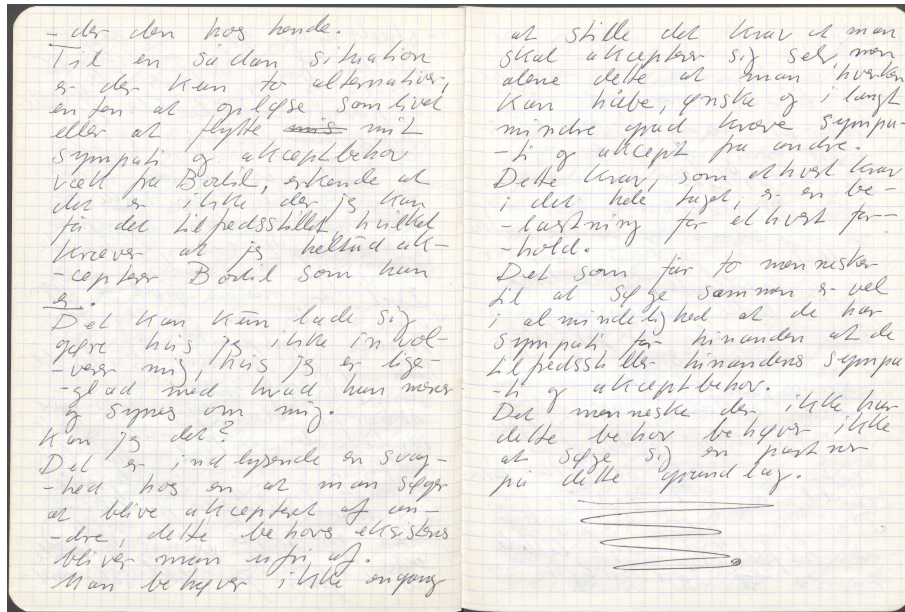 - der den hos hende.
Til en sådan situation
er der kun to alternativer,
enten at opløse samlivet
eller at flytte mis mit
sympati og akceptbehov
væk fra Bodil, erkende at
det er ikke der jeg kan
få det tilfredsstillet, hvilket
kræver at jeg heltud ak-
-cepterer Bodil som hun
er.
Det kan kun lade sig
gøre hvis jeg ikke invol-
-verer mig, hvis jeg er lige-
-glad med hvad hun mener
og synes om mig.
Kan jeg det?
Det er indlysende en svag-
-hed hos en at man søger
at blive akcepteret af an-
-dre, dette behovs eksistens
bliver man ufri af.
Man behøver ikke engang
at stille det krav at man
skal akcepterer sig selv, men
alene dette at man hverken
kan håbe, ønske og i langt
mindre grad kræve sympa-
-ti og akcept fra andre.
Dette krav, som ethvert krav
i det hele taget, er en be-
-lastning for ethvert for-
-hold.
Det som får to mennesker
til at søge sammen er vel
i almindelighed at de har
sympati for hinanden at de
tilfredsstiller hinandens sympa
-ti og akceptbehov.
Det menneske der ikke har
dette behov behøver ikke
at søge sig en partner
på dette grundlag.